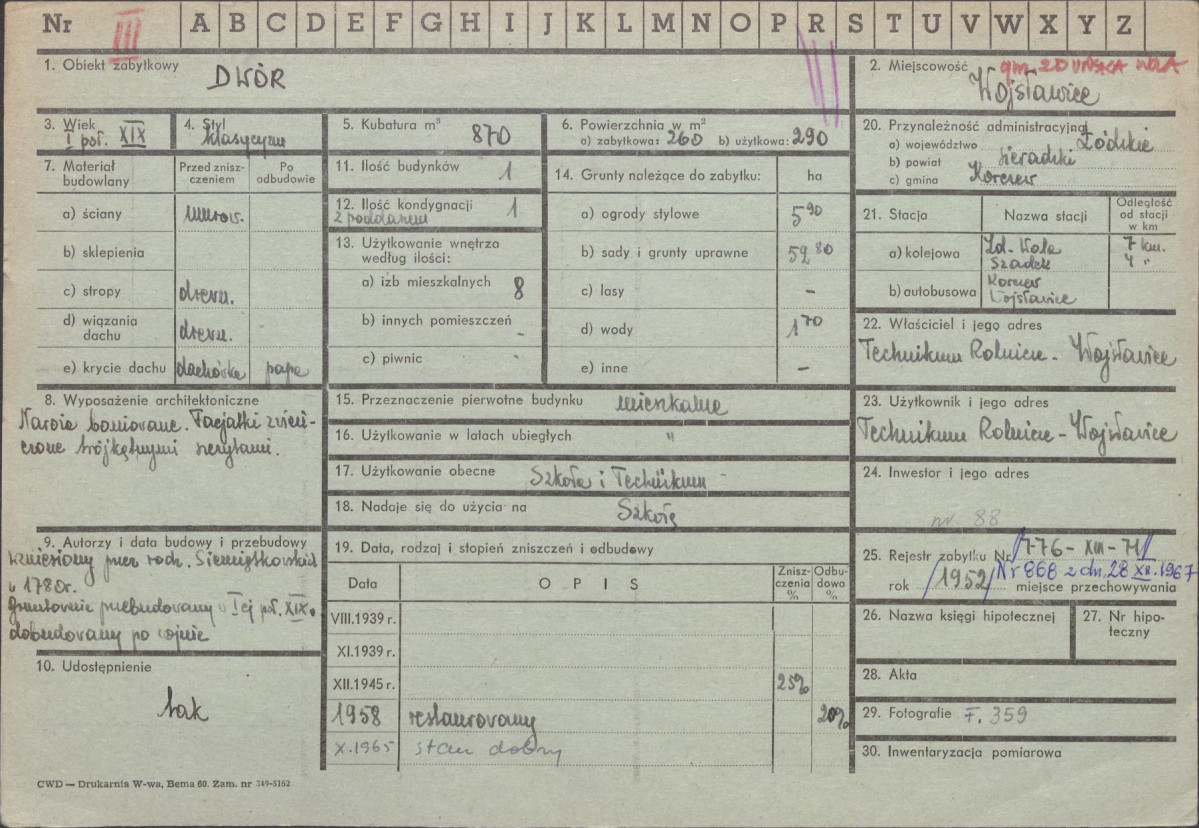 Nr III A B C D E F G H I J K L M N O P R S T U V W X Y Z
1. Obiekt zabytkowy
DWÓR
2. Miejscowość gm. ZDUŃSKA WOLA
Wojsławice
3. Wiek
I poł. XIX
4. Styl
klasycyzm
5. Kubatura m³ 870
6. Powierzchnia w m²
a) zabytkowa: 260 b) użytkowa: 290
20. Przynależność administracyjna
a) województwo Łódzkie
b) powiat sieradzki
c) gmina Korczew
7. Materiał budowlany
Przed zniszczeniem
Po odbudowie
a) ściany murow.
b) sklepienia
c) stropy drewn.
d) wiązania dachu drewn.
e) krycie dachu dachówka papa
11. Ilość budynków 1
12. Ilość kondygnacji 1
z poddaszem
13. Użytkowanie wnętrza
według ilości:
a) izb mieszkalnych 8
b) innych pomieszczeń -
c) piwnic
14. Grunty należące do zabytku: ha
a) ogrody stylowe 5 90
b) sady i grunty uprawne 52 80
c) lasy –
d) wody 1 70
e) inne –
21. Stacja
Nazwa stacji
Odległość od stacji w km
a) kolejowa Zd. Wola 7 km.
Szadek 4 "
b) autobusowa Korczew
Wojsławice
22. Właściciel i jego adres
Technikum Rolnicze - Wojsławice
8. Wyposażenie architektoniczne
Naroża boniowane. Facjatki zwień-
czone trójkątnymi szczytami.
15. Przeznaczenie pierwotne budynku mieszkalne
16. Użytkowanie w latach ubiegłych "
17. Użytkowanie obecne Szkoła i Technikum
18. Nadaje się do użycia na Szkołę
23. Użytkownik i jego adres
Technikum Rolnicze - Wojsławice
24. Inwestor i jego adres
nr. 88
9. Autorzy i data budowy i przebudowy
wzniesiony przez rodz. Siemiątkowskich
w 1780r.
gruntownie przebudowany w I ej poł. XIX w.
dobudowany po wojnie
10. Udostępnienie
tak
19. Data, rodzaj i stopień zniszczeń i odbudowy
Data OPIS Zniszczenia % Odbudowa %
VIII.1939 r.
XI.1939 r.
XII.1945 r. 25%
1958 restaurowany 20%
X.1965 stan dobry
25. Rejestr zabytku Nr /776-XIII-71/
rok /1952/ Nr 868 z dn. 28 XII. 1967
miejsce przechowywania
26. Nazwa księgi hipotecznej
27. Nr hipoteczny
28. Akta
29. Fotografie F. 359
30. Inwentaryzacja pomiarowa
CWD — Drukarnia W-wa, Bema 60. Zam. nr 349-5162